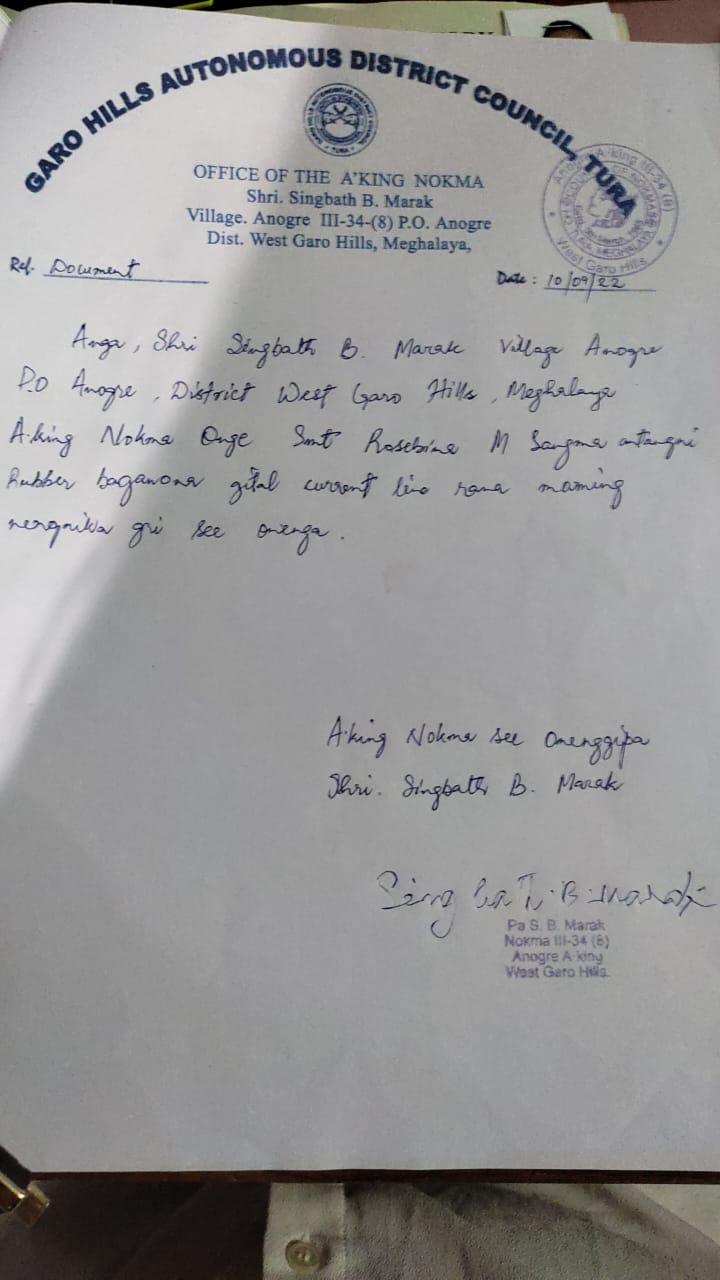 GARO HILLS AUTONOMOUS DISTRICT COUNCIL, TURA
OFFICE OF THE A'KING NOKMA
Shri. Singbath B. Marak
Village. Anogre III-34-(8) P.O. Anogre
Dist. West Garo Hills, Meghalaya,
Ref. Document
Date : 10/09/22
Anga, Shri Singbath B. Marak Village Anogre
P.O Anogre, District West Garo Hills, Meghalaya
A·king Nokma Onge Smt Rosebina M Sangma antangni
Rubber bagawona gital current line rana maming
nengnika gri see onenga.
A·king Nokma see onenggipa
Shri. Singbath B. Marak
Singbath B. Marak
Pa S. B. Marak
Nokma III-34 (8)
Anogre A·king
West Garo Hills.